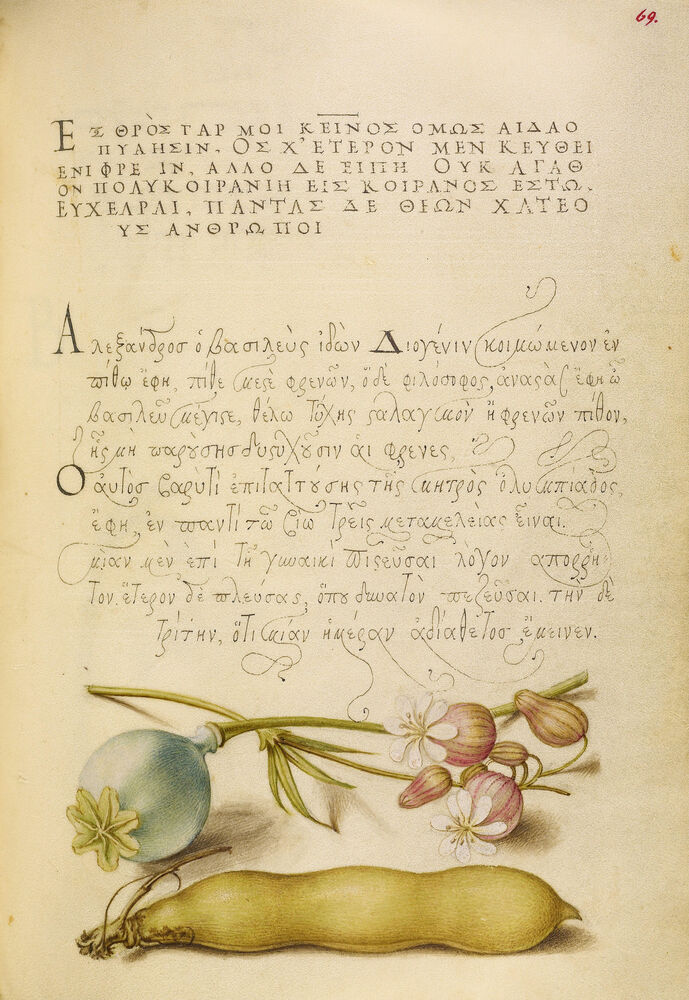 69.
ΕΞ ΘΡῸΣ ΓΑΡ ΜΟΙ ΚΕΙΝΟΣ ΟΜΩΣ ΑΙΔΑΟ
ΠΥΛΗΣΙΝ. ΟΣ Χ'ΕΤΕΡΟΝ ΜΕΝ ΚΕΥΘΕΙ
ΕΝΙ ΦΡΕ ΙΝ, ΑΛΛΟ ΔΕ ΕΙΠΗ ΟΥΚ ΑΓΑΘ
ΟΝ ΠΟΛΥΚΟΙΡΑΝΙΗ ΕΙΣ ΚΟΙΡΑΝΟΣ ΕΣΤΩ.
ΕΥΧΕΑΡΑΙ, ΠΑΝΤΑΣ ΔΕ ΘΕΩΝ ΧΑΤΕΟ
ΥΣ ΑΝΘΡΩΠΟΙ
Αλεξάνδροσ ὁ βασιλεὺς ἰδὼν Διογένιν κοιμώμενον ἐν
πίθω ἔφη, πίθε μεςὲ φρενῶν, ὁ δὲ φιλόσοφος, ἀναςὰς ἔφη ὦ
βασιλεῦ μέγιςε, θέλω τύχης ςαλαγμὸν ἢ φρενῶν πίθον,
ἧς μὴ παρὲσης δυςυχοῦσιν ἁι φρενες,
Ο αὐτὸς βαρύτι ἐπιταττούσης τῆς μητρὸς ὀλυμπιάδος,
ἔφη, ἐν παντὶ τῶ βίω τρεῖς μεταμελείας εἶναι.
μίαν μὲν ἐπὶ τῇ γυναικὶ πιςεῦσαι λόγον απορρη-
τον. ἕτερον δὲ πλεύσας, ὅπου δυνατὸν πεζεῦσαι. τὴν δὲ
τρίτην, ὅτι μίαν ἡμέραν ἀδιάθετος ἔμεινεν.